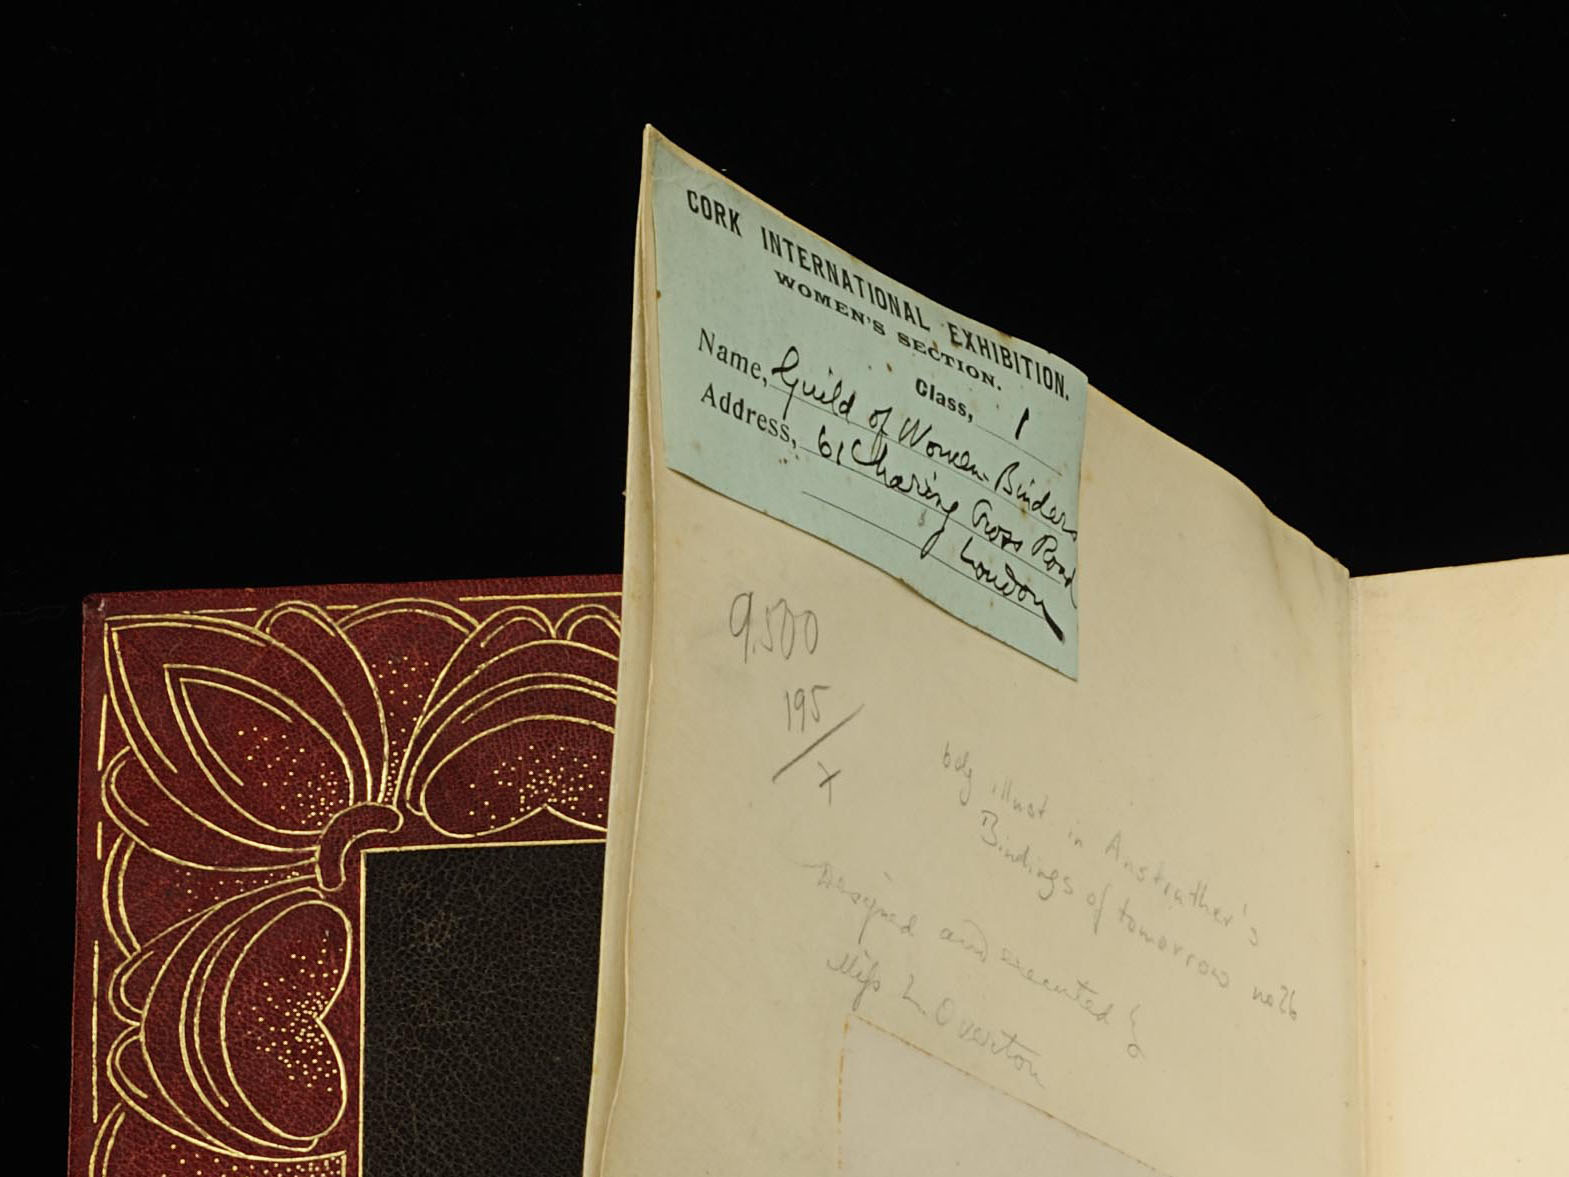 CORK INTERNATIONAL EXHIBITION.
WOMEN'S SECTION.
Class, 1
Name, Guild of Women-Binders
Address, 61 Charing Cross Road
London
9.500
195/x
bdg illust in Anstruther's
Bindings of tomorrow no 26
Designed and executed by
Miss L Overton